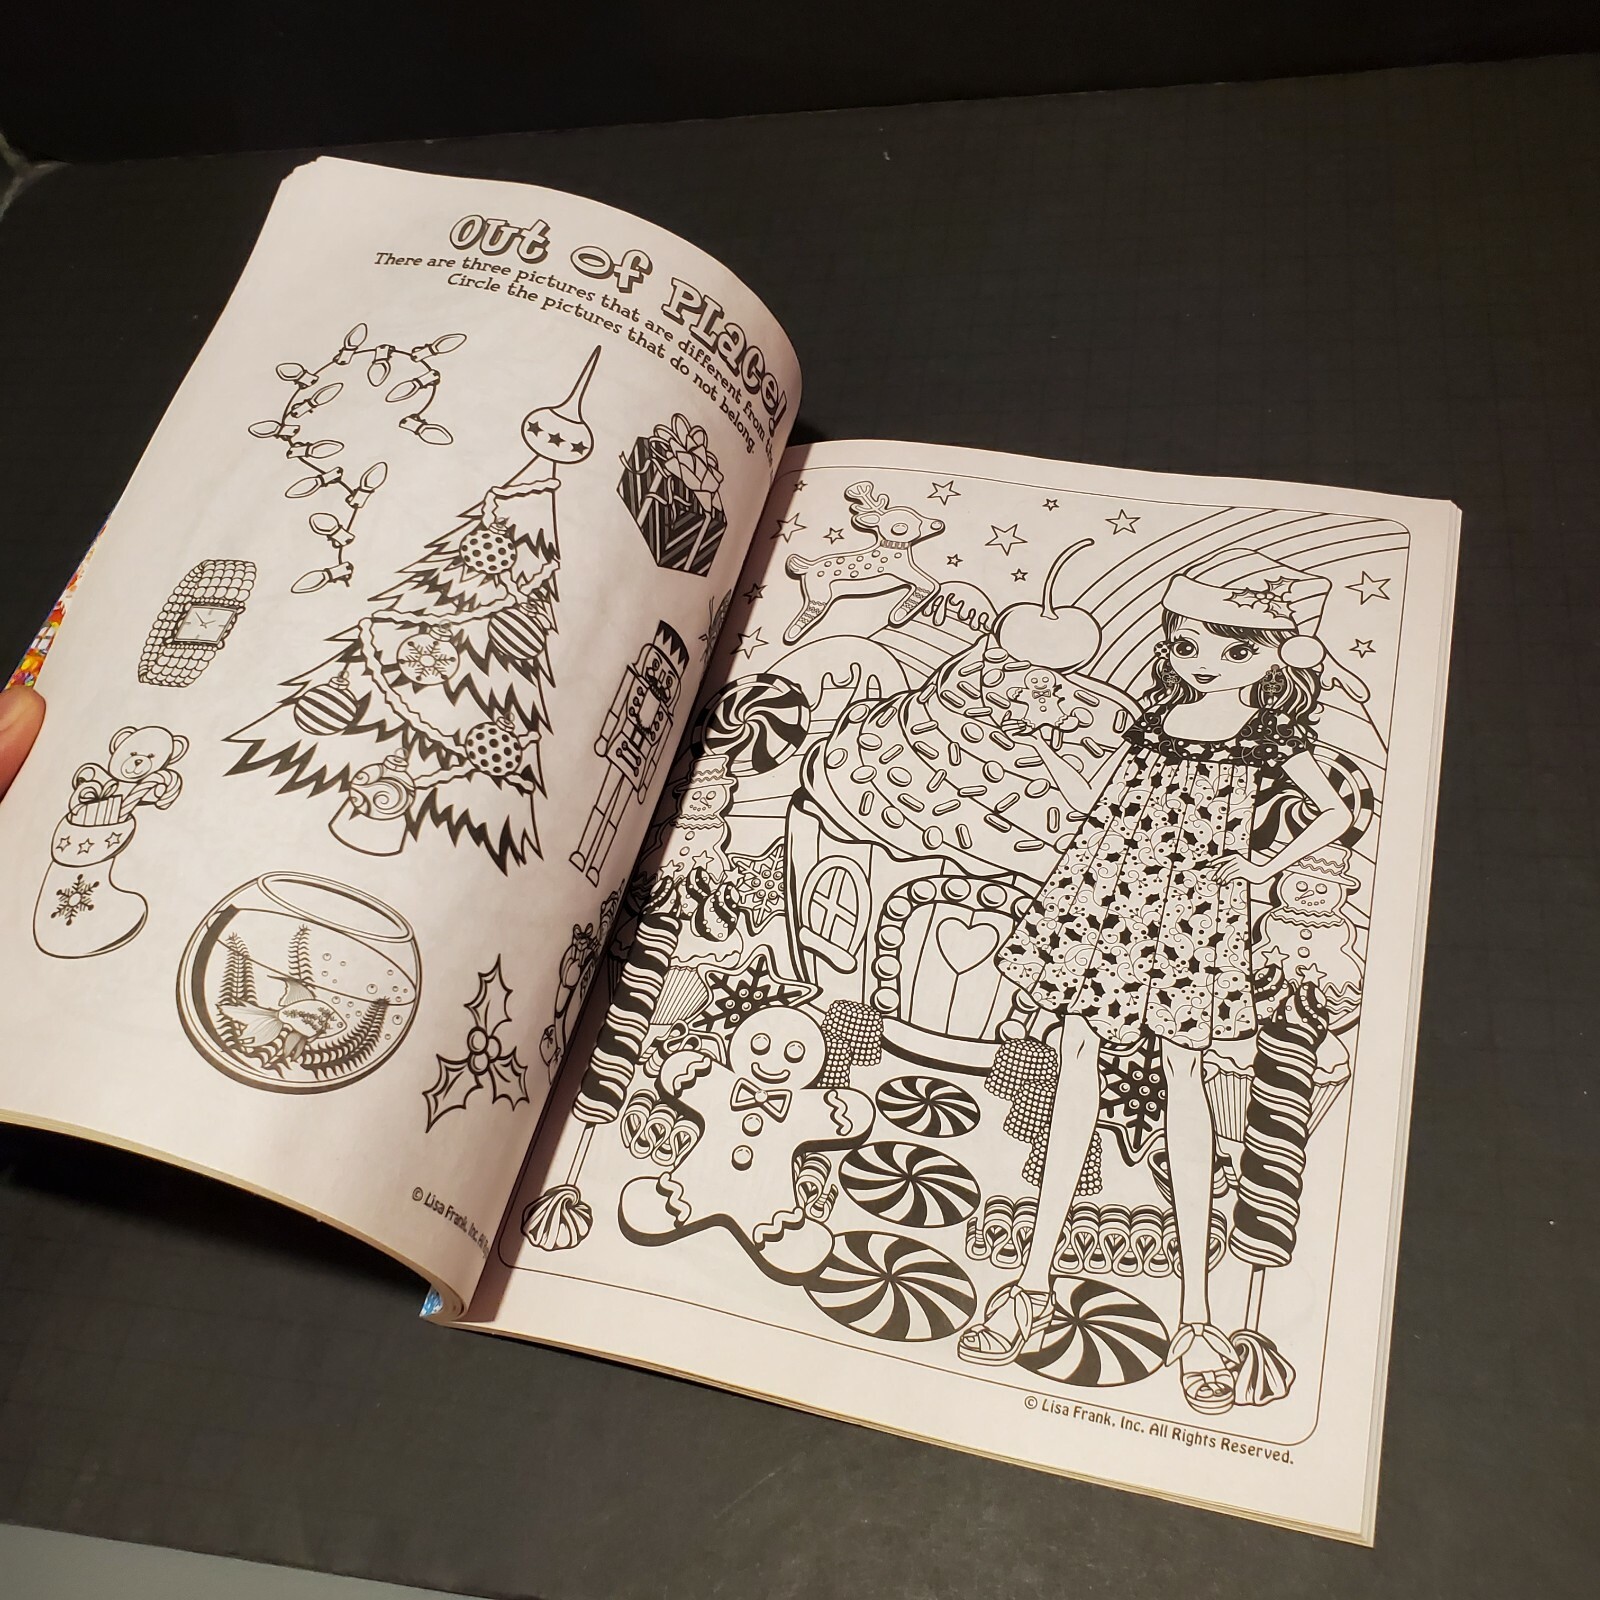 Out of Place!
There are three pictures that are different from the
Circle the pictures that do not belong.
© Lisa Frank, Inc. All
© Lisa Frank, Inc. All Rights Reserved.